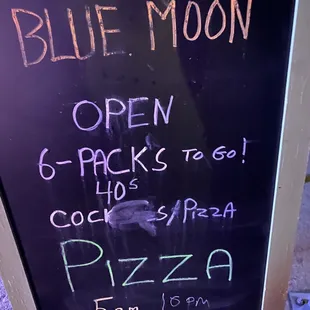 BLUE MOON
OPEN
6-PACKS TO GO!
40s
PIZZA
PIZZA
10 PM